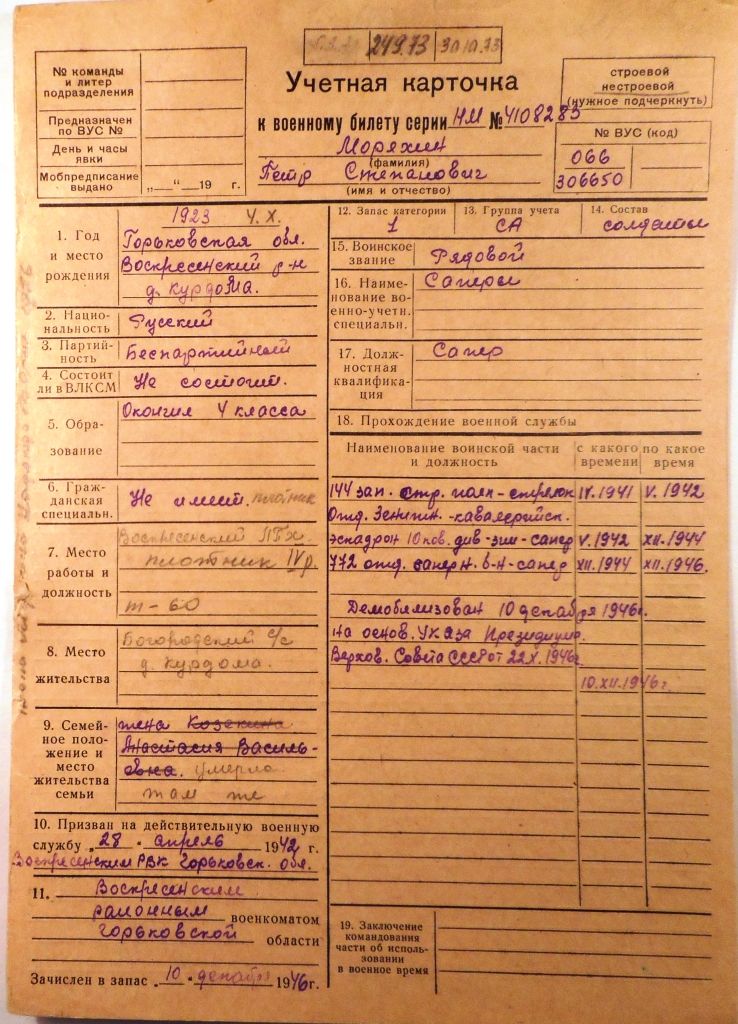 24.9.73 30.10.73
Учетная карточка
к военному билету серии НМ № 4108283
Моряхин
(фамилия)
Петр Степанович
(имя и отчество)
№ команды
и литер
подразделения
Предназначен
по ВУС №
День и часы
явки
Мобпредписание
выдано „ “ 19 г.
строевой
нестроевой
(нужное подчеркнуть)
№ ВУС (код)
066
306650
1. Год
и место
рождения
1923 Ч.X.
Горьковская обл.
Воскресенский р-н
д. Курдома.
2. Нацио-
нальность
Русский
3. Партий-
ность
Беспартийный
4. Состоит
ли в ВЛКСМ
Не состоит.
5. Обра-
зование
Окончил 4 класса
6. Граж-
данская
специальн.
Не имеет. плотник
7. Место
работы и
должность
Воскресенский ЛПХ
плотник IVр.
т-60
8. Место
жительства
Богородский с/с
д. Курдома.
9. Семей-
ное поло-
жение и
место
жительства
семьи
жена Козекина
Анастасия Василь-
евна. умерла
там же
10. Призван на действительную военную
службу „28“ апрель 1942 г.
Воскресенским РВК Горьковск. обл.
11. Воскресенским
районным военкоматом
Горьковской области
Зачислен в запас „10“ декабря 1946 г.
12. Запас категории
1
13. Группа учета
СА
14. Состав
солдаты
15. Воинское
звание
Рядовой
16. Наиме-
нование во-
енно-учетн.
специальн.
Саперы
17. Долж-
ностная
квалифика-
ция
Сапер
18. Прохождение военной службы
Наименование воинской части
и должность
с какого
времени
по какое
время
144 зап. стр. полк - стрелок IV.1941 V.1942
Отд. Зенитн. -кавалерийск.
эскадрон 10 кав. див-зии - сапер V.1942 XII.1944
772 отд. саперн. б-н - сапер XII.1944 XII.1946.
Демобилизован 10 декабря 1946г.
на основ. Указа Президиума
Верхов. Совета СССР от 22 X. 1946г
10.XII.1946г
19. Заключение
командования
части об исполь-
зовании
в военное время